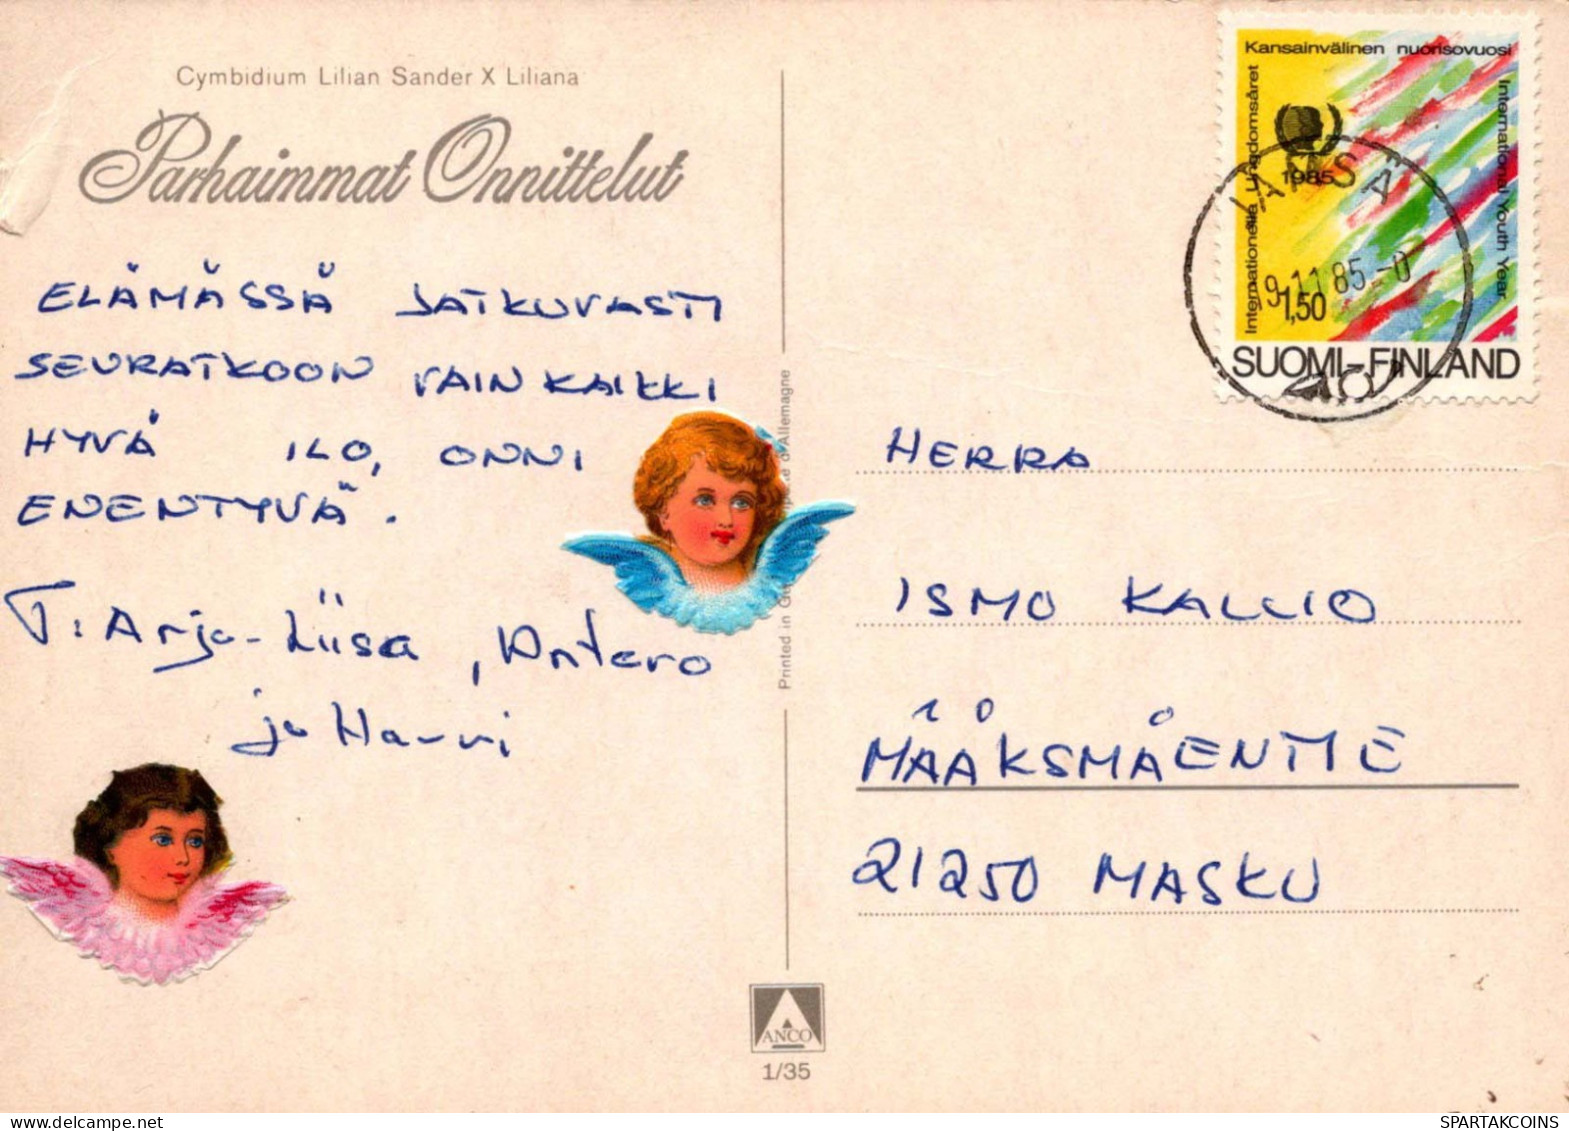 Cymbidium Lilian Sander X Liliana
Parhaimmat Onnittelut
ELÄMÄSSÄ JATKUVASTI
SEURATKOON VAIN KAIKKI
HYVÄ ILO, ONNI
ENENTYVÄ.
T: Arja-Liisa, Antero
ja Harri
Printed in
d'Allemagne
ANCO
1/35
Kansainvälinen nuorisovuosi
Internationella Ungdomsåret
International Youth Year
1985
1,50
SUOMI-FINLAND
9.11.85.-0
HERRA
ISMO KALLIO
MÄÄKSMÄENTIE
21250 MASKU
SPARTAKCOINS